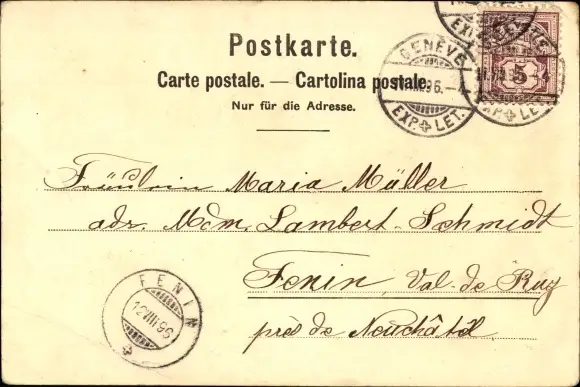 Postkarte.
Carte postale. — Cartolina postale.
Nur für die Adresse.
GENÈVE
EXP. LET.
5
Fräulein Maria Müller
adr. Mdm. Lambert-Schmidt
Fenin, Val-de Ruz
près de Neuchâtel
FENIN
12 VIII 96